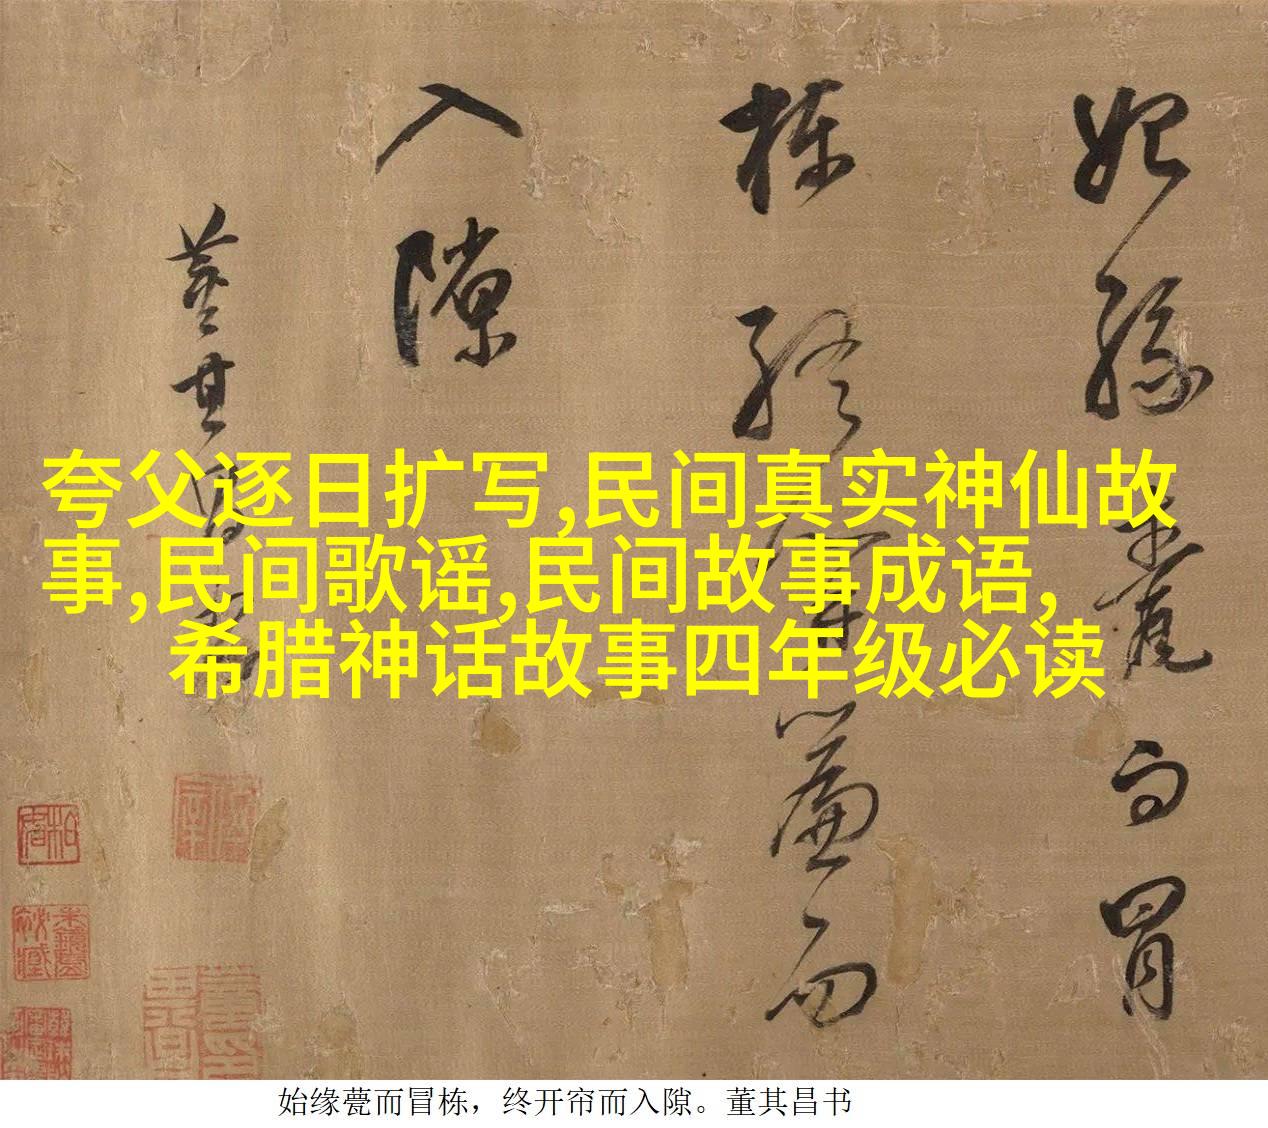 始缘甍而冒
栋终开簾而
入隙
董其昌書
夸父逐日扩写,民间真实神仙故
事,民间歌谣,民间故事成语,
希腊神话故事四年级必读
始缘甍而冒栋，终开帘而入隙。董其昌书